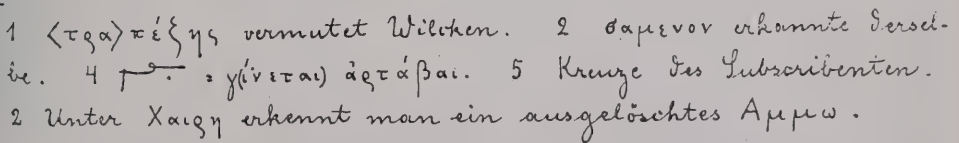 1 ⟨τρα⟩πέζης vermutet Wilcken. 2 σαμενον erkannte dersel-
be. 4 = γ(ίνεται) ἀρτάβαι. 5 Kreuze des Subscribenten.
2 Unter Χαιρη erkennt man ein ausgelöschtes Αμμω.